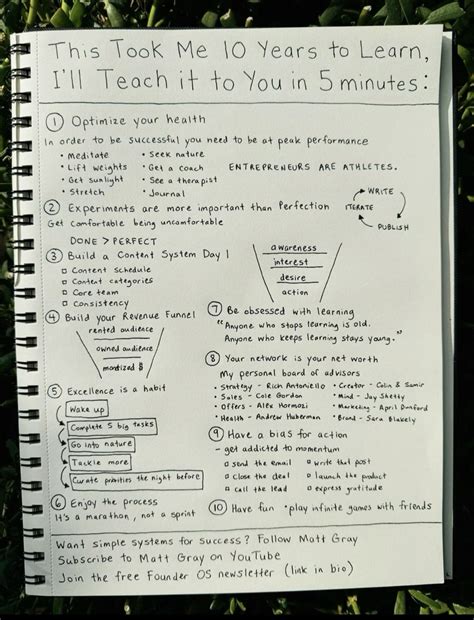 This Took Me 10 Years to Learn,
I'll Teach it to You in 5 minutes:
① Optimize your health
In order to be successful you need to be at peak performance
• Meditate
• Lift weights
• Get sunlight
• Stretch
• Seek nature
• Get a coach
• See a therapist
• Journal
ENTREPRENEURS ARE ATHLETES.
② Experiments are more important than Perfection
Get comfortable being uncomfortable
DONE > PERFECT
WRITE
ITERATE
PUBLISH
③ Build a Content System Day 1
□ Content Schedule
□ Content categories
□ Core team
□ Consistency
awareness
interest
desire
action
④ Build your Revenue Funnel
rented audience
owned audience
monetized $
⑤ Excellence is a habit
Wake up
Complete 5 big tasks
Go into nature
Tackle more
Curate priorities the night before
⑥ Enjoy the process
It's a marathon, not a sprint
⑦ Be obsessed with learning
"Anyone who stops learning is old.
Anyone who keeps learning stays young."
⑧ Your network is your net worth
My personal board of advisors
• Strategy - Rich Antoniello
• Sales - Cole Gordon
• Offers - Alex Hormozi
• Health - Andrew Huberman
• Creator - Colin & Samir
• Mind - Jay Shetty
• Marketing - April Dunford
• Brand - Sara Blakely
⑨ Have a bias for action
- get addicted to momentum
□ send the email
□ close the deal
□ call the lead
□ write that post
□ launch the product
□ express gratitude
⑩ Have fun • play infinite games with friends
Want simple systems for success? Follow Matt Gray
Subscribe to Matt Gray on YouTube
Join the free Founder OS newsletter (link in bio)